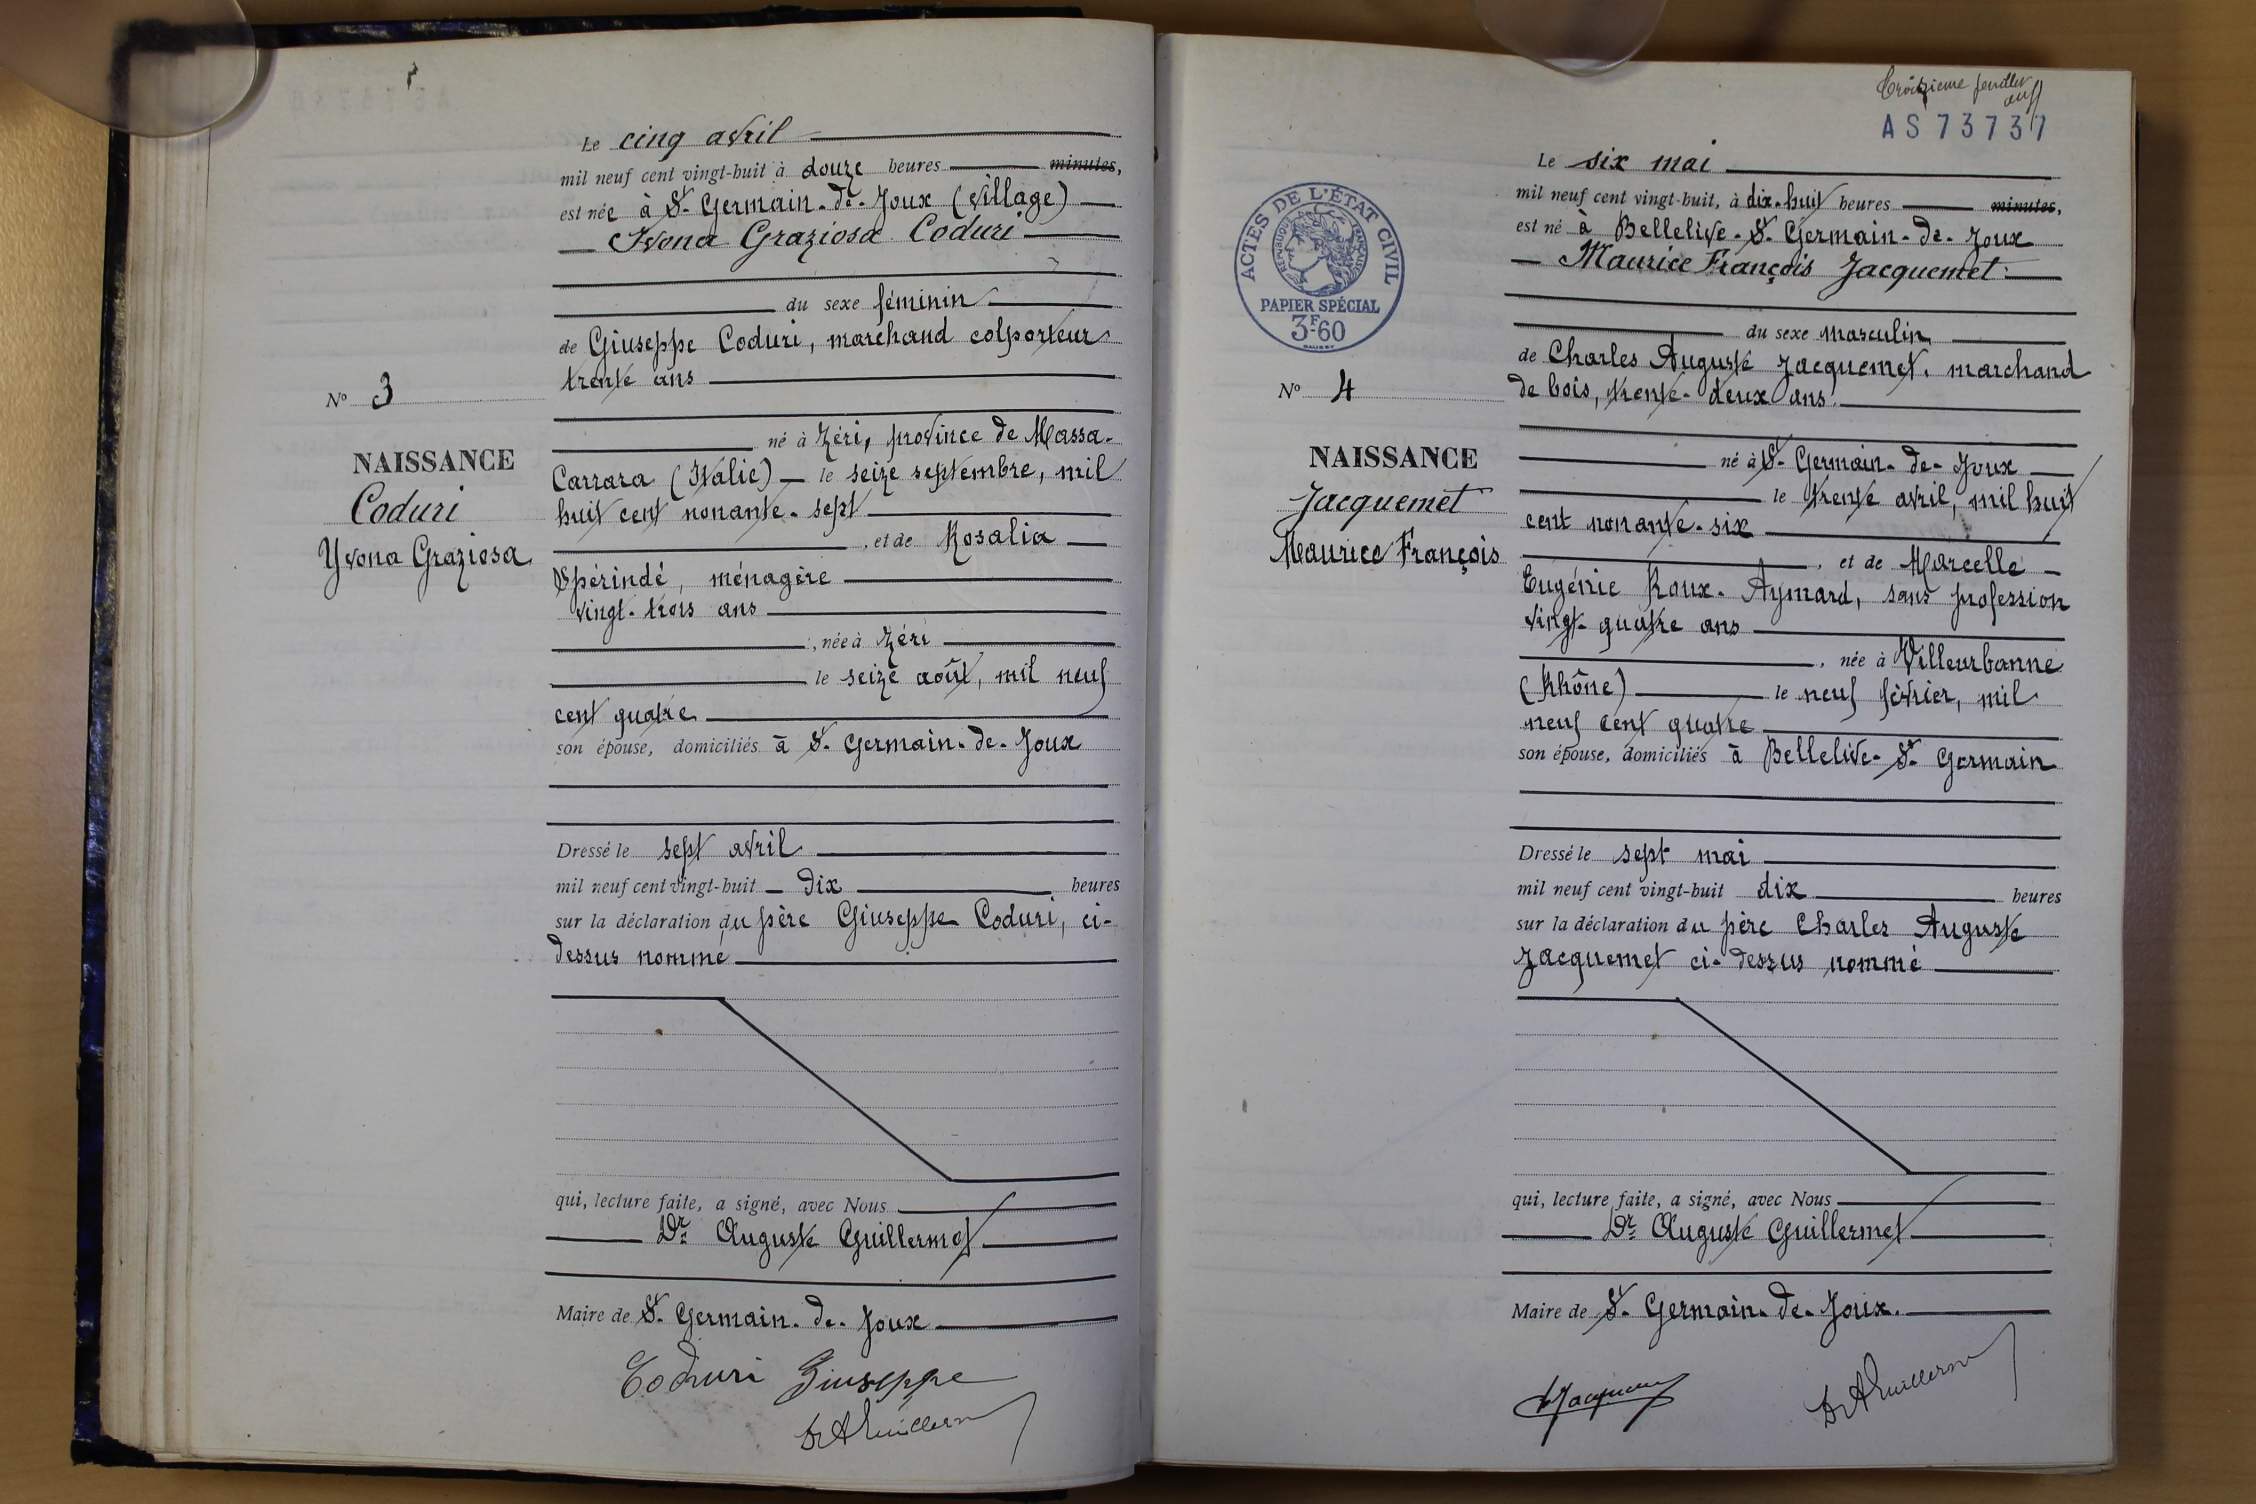 Le cinq avril
mil neuf cent vingt-huit à douze heures minutes,
est née à St Germain-de-Joux (village)
Yvona Graziosa Coduri
du sexe féminin
de Giuseppe Coduri, marchand colporteur
trente ans
N° 3
né à Zéri, province de Massa-
NAISSANCE
Carrara (Italie) le seize septembre, mil
Coduri
huit cent nonante-sept
Yvona Graziosa
, et de Rosalia
Spérindé, ménagère
vingt-trois ans
, née à Zéri
le seize août, mil neuf
cent quatre
son épouse, domiciliés à St Germain-de-Joux
Dressé le sept avril
mil neuf cent vingt-huit dix heures
sur la déclaration du père Giuseppe Coduri, ci-
dessus nommé
qui, lecture faite, a signé, avec Nous
Dr Auguste Guillermet
Maire de St Germain-de-Joux
Coduri Giuseppe
Dr A Guillermet
feuillet
AS 73737
Le six mai
mil neuf cent vingt-huit, à dix-huit heures minutes,
est né à Bellelive-St Germain-de-Joux
Maurice François Jacquemet
ACTES DE L'ÉTAT CIVIL
RÉPUBLIQUE FRANÇAISE
PAPIER SPÉCIAL
3F60
du sexe masculin
de Charles Auguste Jacquemet, marchand
de bois, trente-deux ans
N° 4
NAISSANCE
né à St Germain-de-Joux
Jacquemet
le trente avril, mil huit
cent nonante-six
Maurice François
, et de Marcelle
Eugénie Roux-Aymard, sans profession
vingt-quatre ans
, née à Villeurbanne
(Rhône) le neuf février, mil
neuf cent quatre
son épouse, domiciliés à Bellelive-St Germain
Dressé le sept mai
mil neuf cent vingt-huit dix heures
sur la déclaration du père Charles Auguste
Jacquemet ci-dessus nommé
qui, lecture faite, a signé, avec Nous
Dr Auguste Guillermet
Maire de St Germain-de-Joux.
Jacquemet
Dr A Guillermet